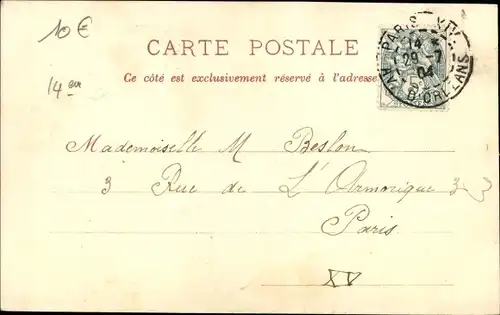 10 €
14 en
CARTE POSTALE
Ce côté est exclusivement réservé à l'adresse
PARIS XIV
14
29 7
04
AV. D'ORLEANS
Mademoiselle M Beslon
3 Rue de L'Armorique 3
Paris
XV